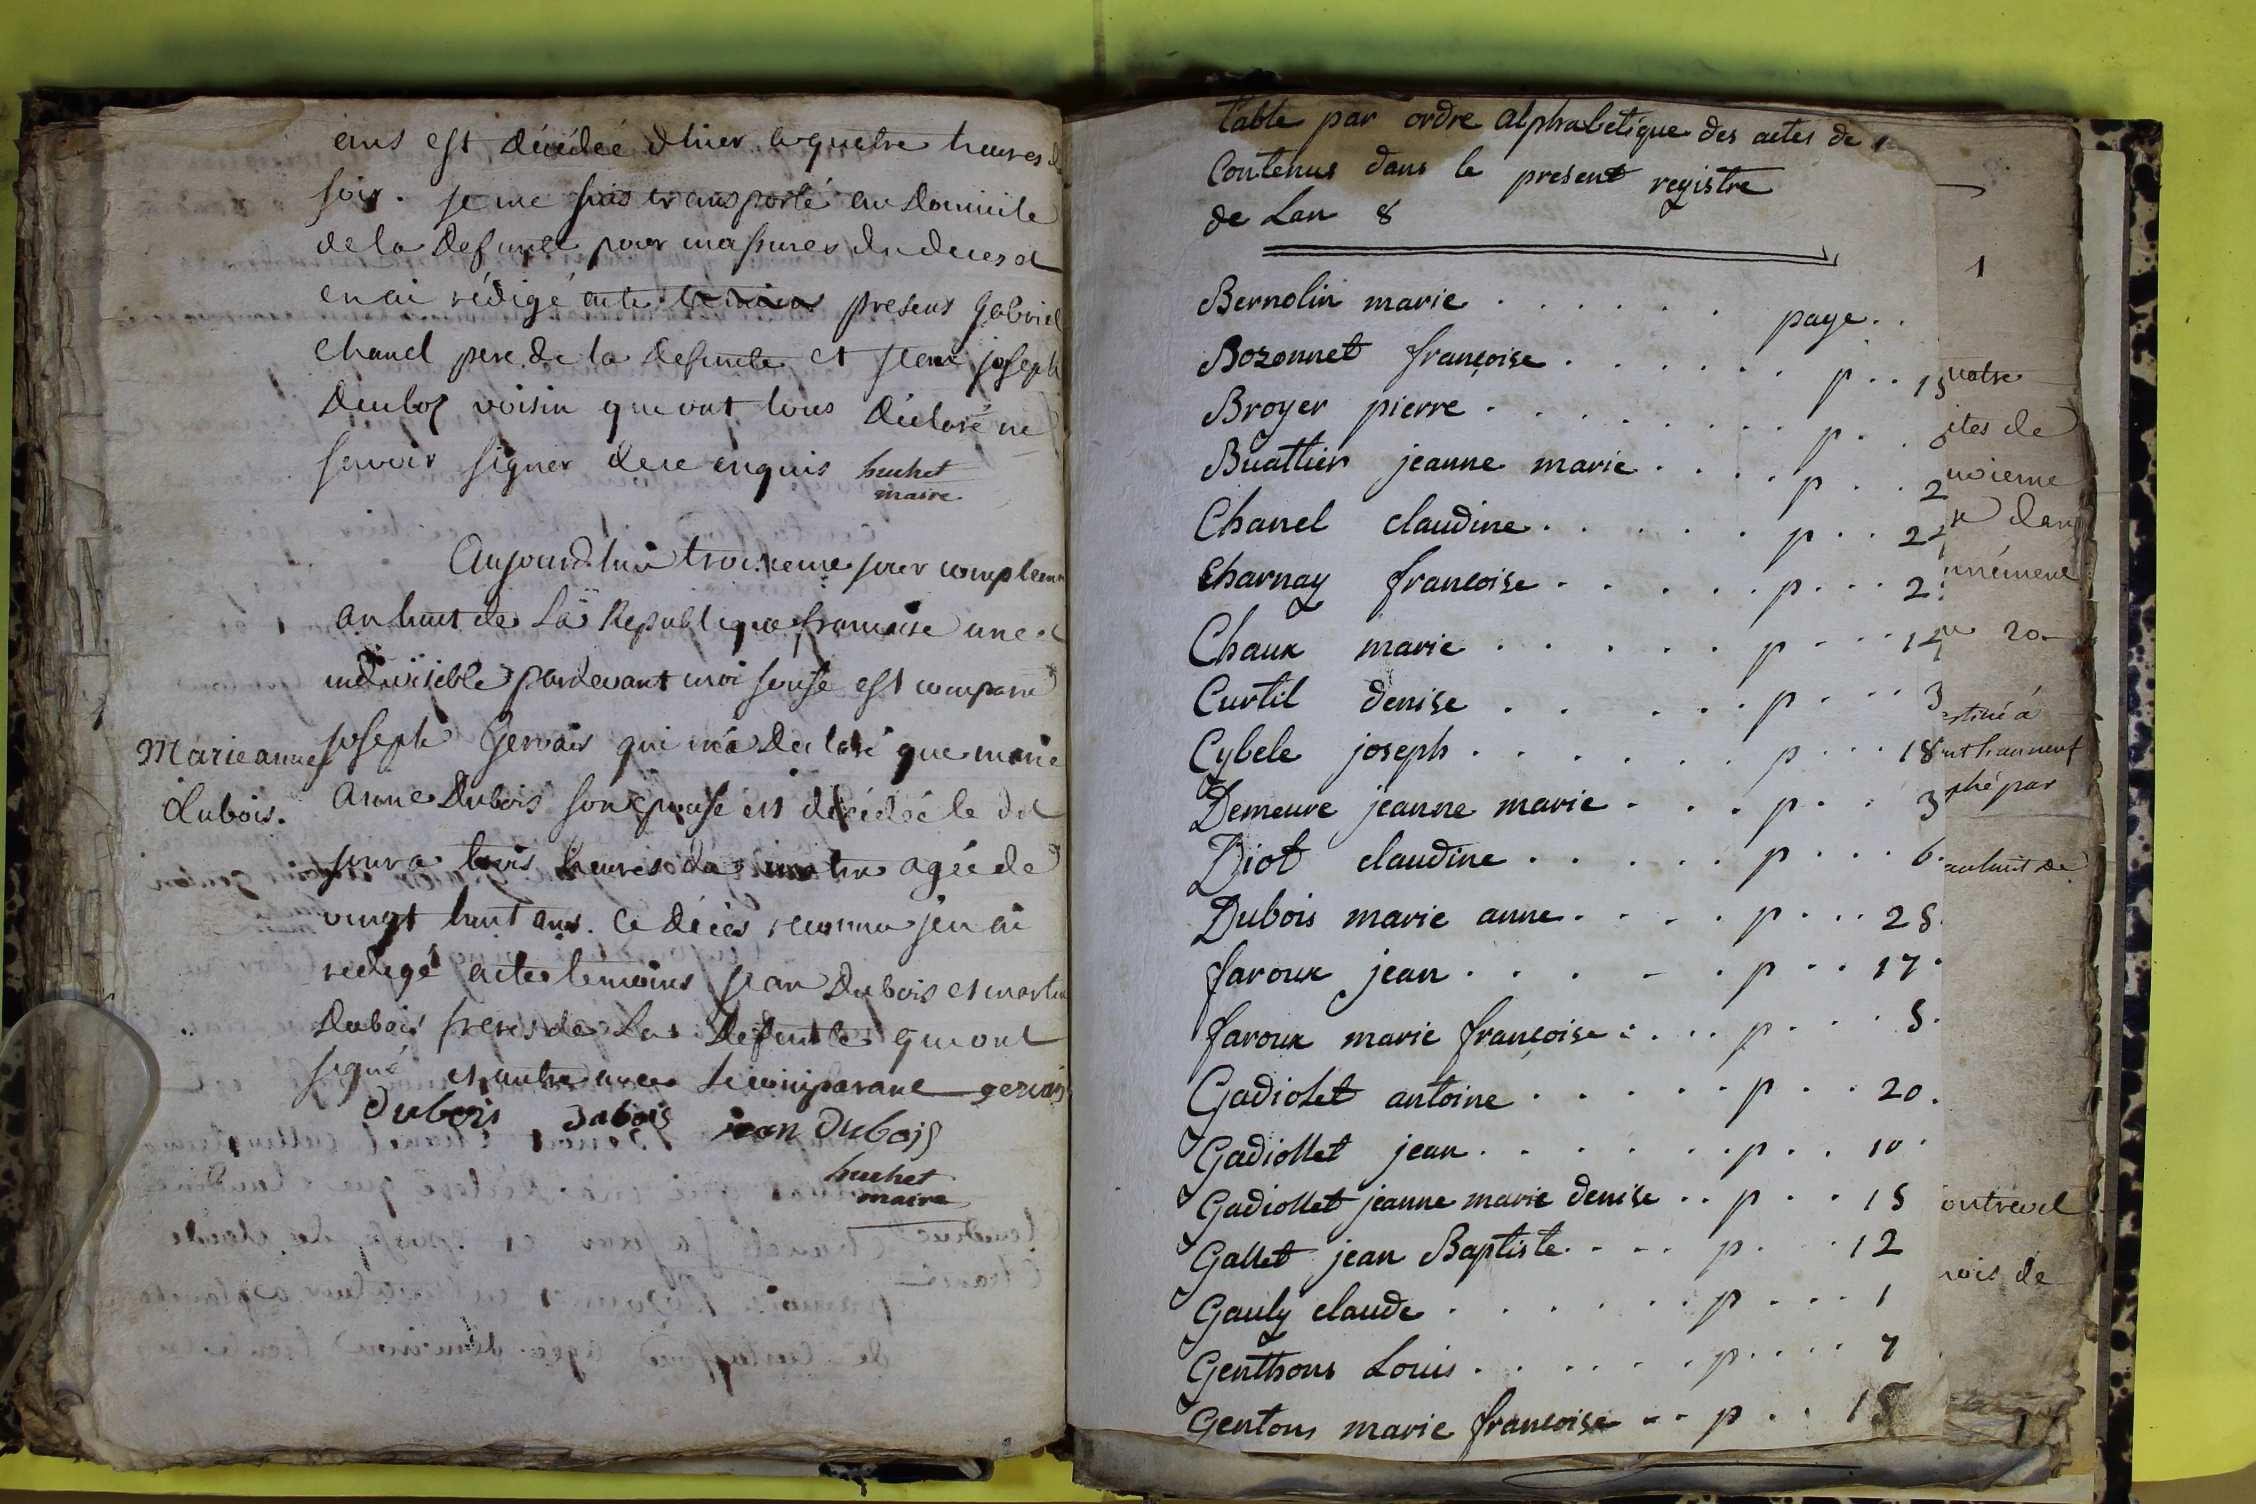 ans est décédée d'hier a quatre heures du
soir. je me suis transporté au Domicile
de la defunte pour m'assurer du deces et
en ai rédigé acte temoins presens gabriel
chanel pere de la defunte et jean joseph
voisin qui ont tous déclaré ne
savoir signer de ce enquis huchet
maire
Aujourd'hui troisieme jour complem
an huit de La Republique francaise une et
indivisible pardevant moi sousé est comparu
joseph Gervais qui m'a Déclaré que marie
Marie anne
dubois.
anne Dubois son epouse est décédée le dit
jour a trois heures du matin agée de
vingt huit ans. Ce décès reconnu j'en ai
redigé acte temoins jean Dubois et martin
Dubois freres de La Defunte qui ont
signé le comparant gervais
dubois dubois jean dubois
huchet
maire
table par ordre alphabetique des actes de
Contenus dans le present registre
de Lan 8
Bernolin marie . . . . . . page . .
Bozonnet françoise . . . . . . p . . 15
Broyer pierre . . . . . . . p . .
Buattier jeanne marie . . . . p . . 2
Chanel claudine . . . . . p . . 22
Charnay francoise . . . . . p . . . 2
Chaux marie . . . . . p . . . 14
Curtil denise . . . . . p . . . 3
Cybele joseph . . . . . . p . . . 18
Demeure jeanne marie . . . p . . 3
Diot claudine . . . . . p . . . 6.
Dubois marie anne . . . . p . . . 25.
faroux jean . . . . . p . . 17.
faroux marie françoise : . . . p . . . 5.
Gadiolet antoine . . . . . p . . . 20.
Gadiollet jean . . . . . . p . . 10.
Gadiollet jeanne marie denise . . p . . . 15
Gallet jean Baptiste . . . . p . . . 12
Gauly claude . . . . . . p . . . 1
Genthons Louis . . . . . . p . . . . 7
Gentons marie francoise . . p . . 15
1
notre
ites de
noieme
dans
20
stiné à
nt han neuf
phé par
an huit de
ontrevel
nois de